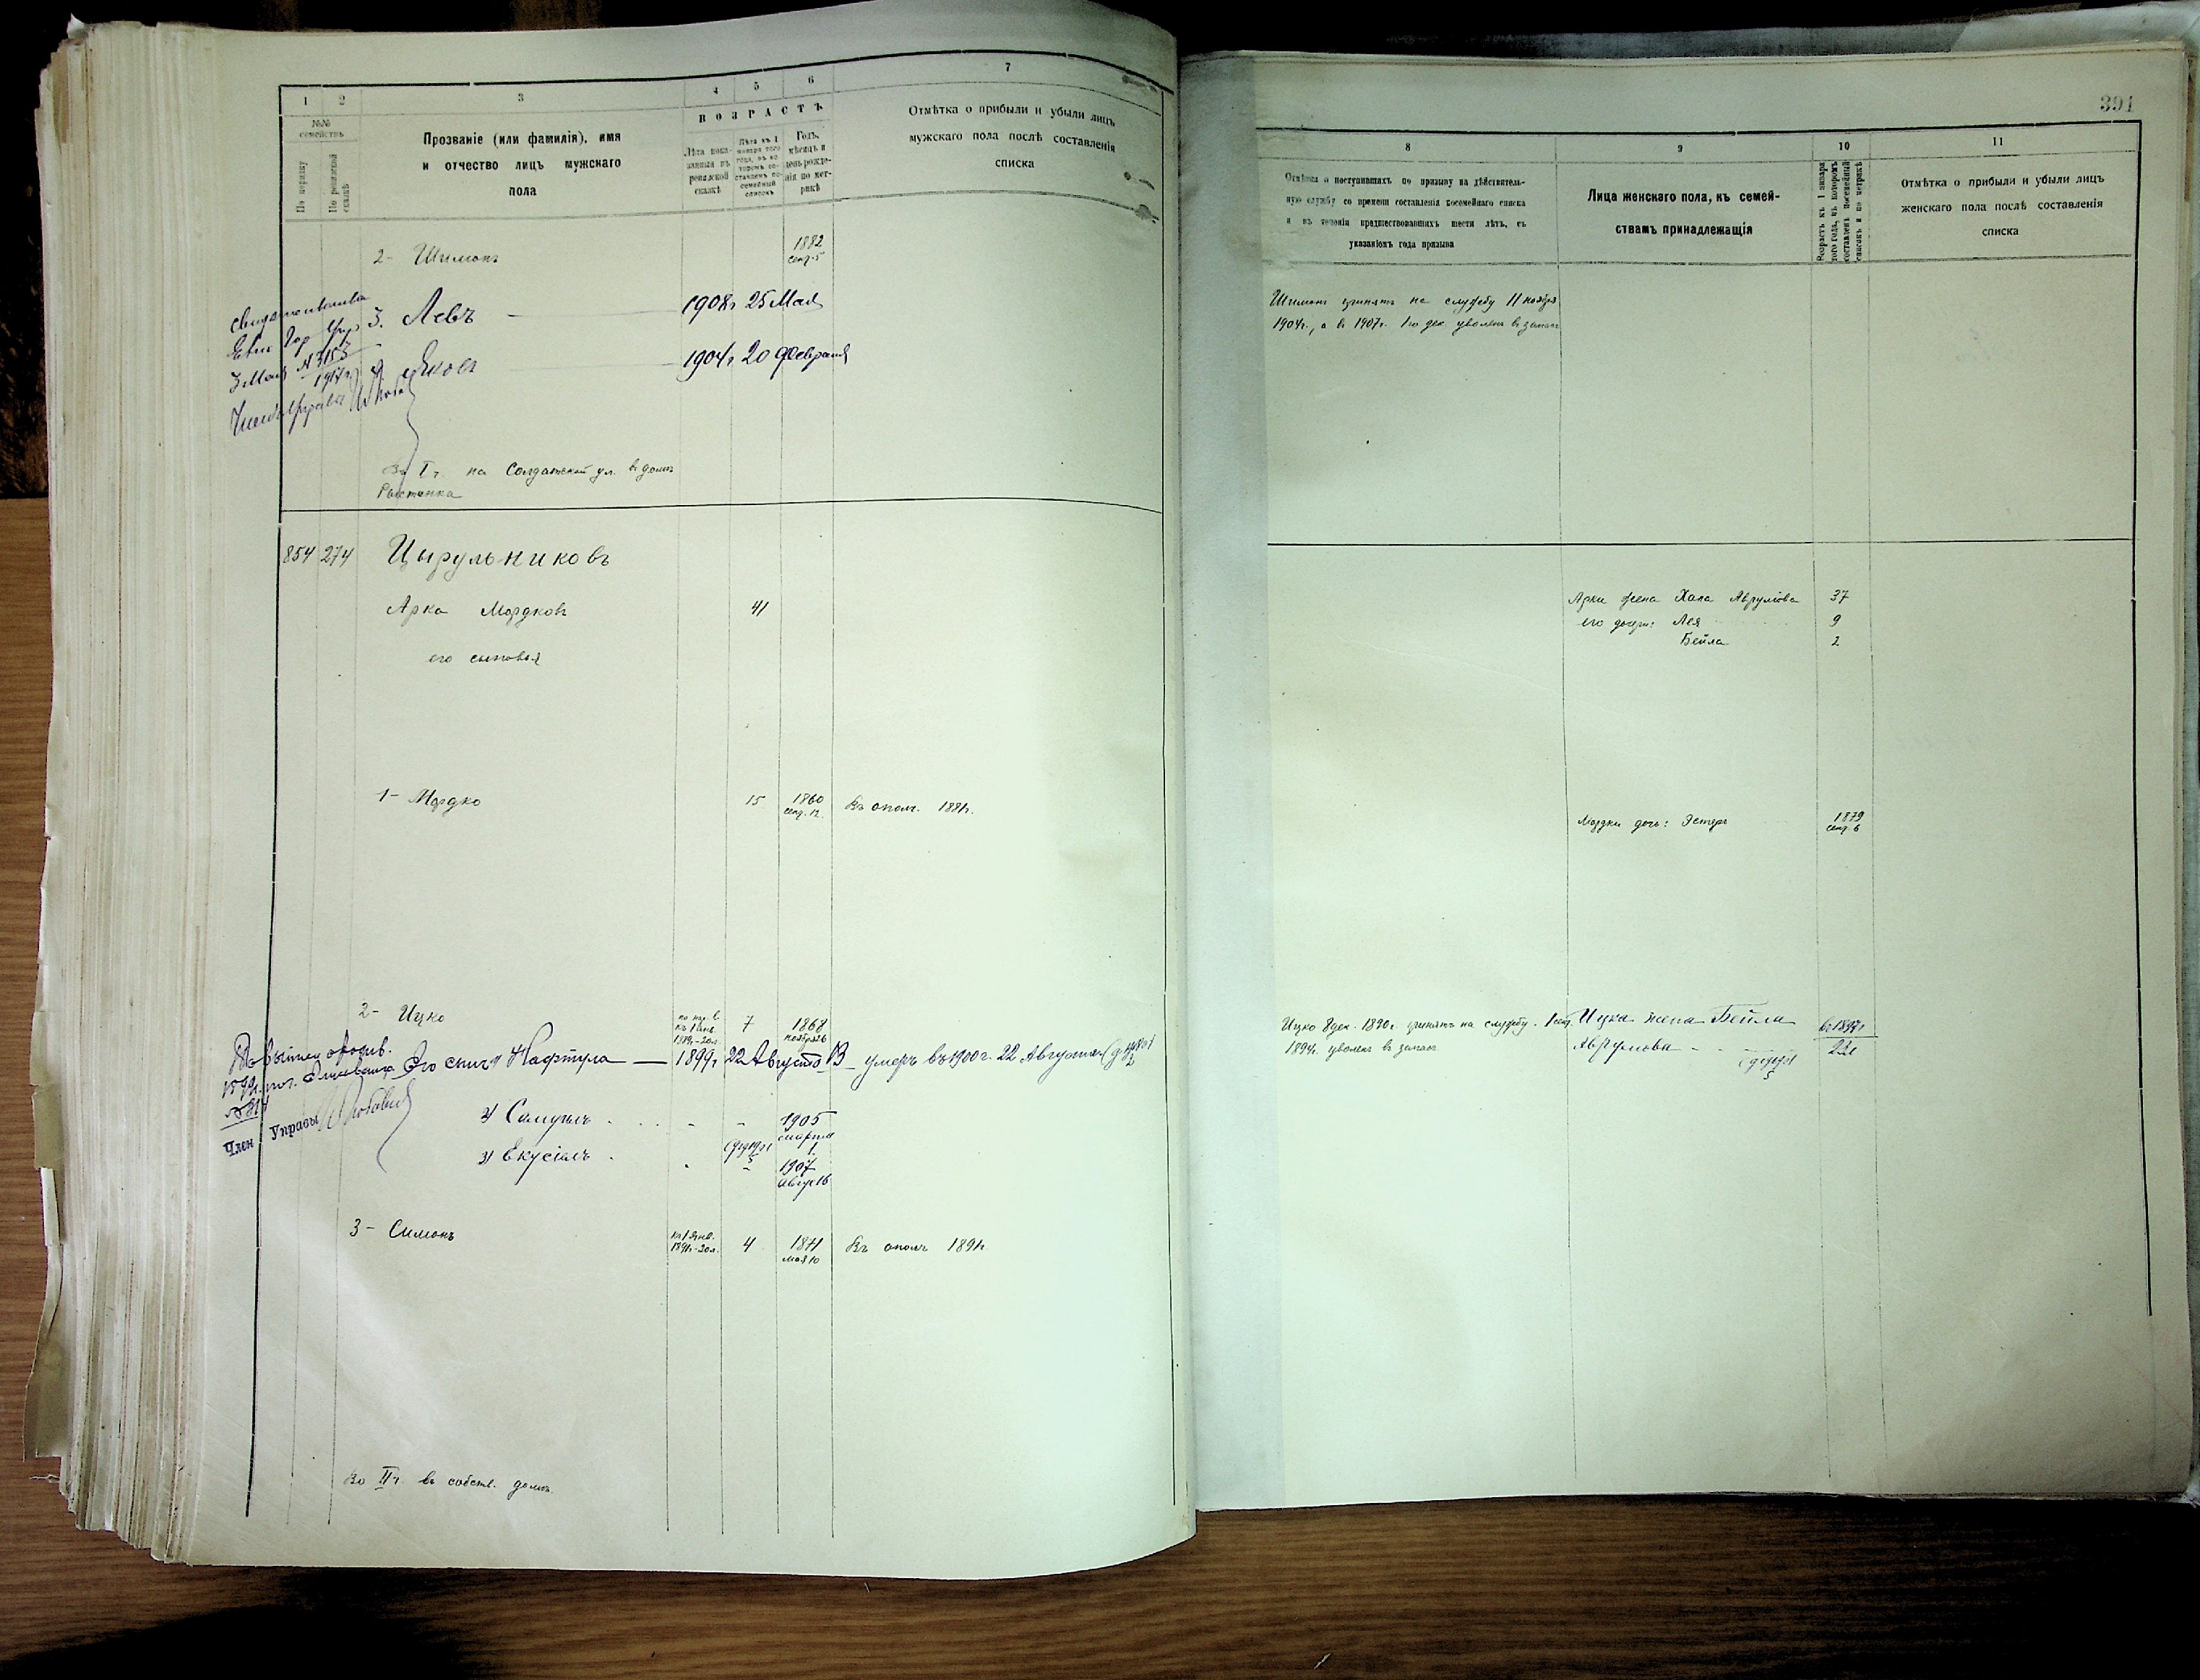 1 2 3 4 5 6 7
№№ семействъ
По порядку
По ревизской сказкѣ
Прозваніе (или фамилія), имя
и отчество лицъ мужскаго
пола
ВОЗРАСТЪ
Лѣта пока-
занныя въ
ревизской
сказкѣ
Лѣта къ 1
января того
года, въ ко-
торомъ со-
ставленъ по-
семейный
списокъ
Годъ,
мѣсяцъ и
день рожде-
нія по мет-
рикѣ
Отмѣтка о прибыли и убыли лицъ
мужскаго пола послѣ составленія
списка
2- Шимонъ 1882
сент. 5
3. Левъ 1908г 25 Мая
4 Яковъ 1904г 20 Февраля
3 Мая № 3153
1917г.
Во I ч. на Солдатской ул. въ домѣ
854 274 Цырульниковъ
Арка Мордковъ 41
его сыновья
1- Мордко 15 1860
сент. 12. Въ ополч. 1881г.
2- Ицко 7 1868
ноября 26
къ 1 янв.
1889г.-20л.
Его сынъ 1 Нафтула — 1899г 22 Августа В умеръ въ 1900 г. 22 Августа
Член Управы
2) Самуилъ 1905
марта
1
3) Екусіилъ 1907
Август 16
3- Симонъ къ 1 янв.
1891г.-20л. 4 1871
мая 10 Въ ополч 1891г.
Во II ч. въ собств. домѣ.
391
8 9 10 11
Отмѣтка о поступившихъ по призыву на дѣйствитель-
ную службу со времени составленія посемейнаго списка
и въ теченіи предшествовавшихъ шести лѣтъ, съ
указаніемъ года призыва
Лица женскаго пола, къ семей-
ствамъ принадлежащія
Возрастъ къ 1 января
того года, въ которомъ
составленъ посемейный
списокъ и по метрикѣ
Отмѣтка о прибыли и убыли лицъ
женскаго пола послѣ составленія
списка
Шимонъ принятъ на службу 11 ноября
1904г., а въ 1907г. 1го дек. уволенъ въ запасъ
Арки жена Хая Аврумова 37
его дочери: Лея 9
Бейла 2
Мордки дочь: Эстеръ 1879
сент. 6
Ицко 8 дек. 1890г. принятъ на службу. 1 сент.
1894г. уволенъ въ запасъ
Ицка жена Бейла
Аврумова въ 1897г
22